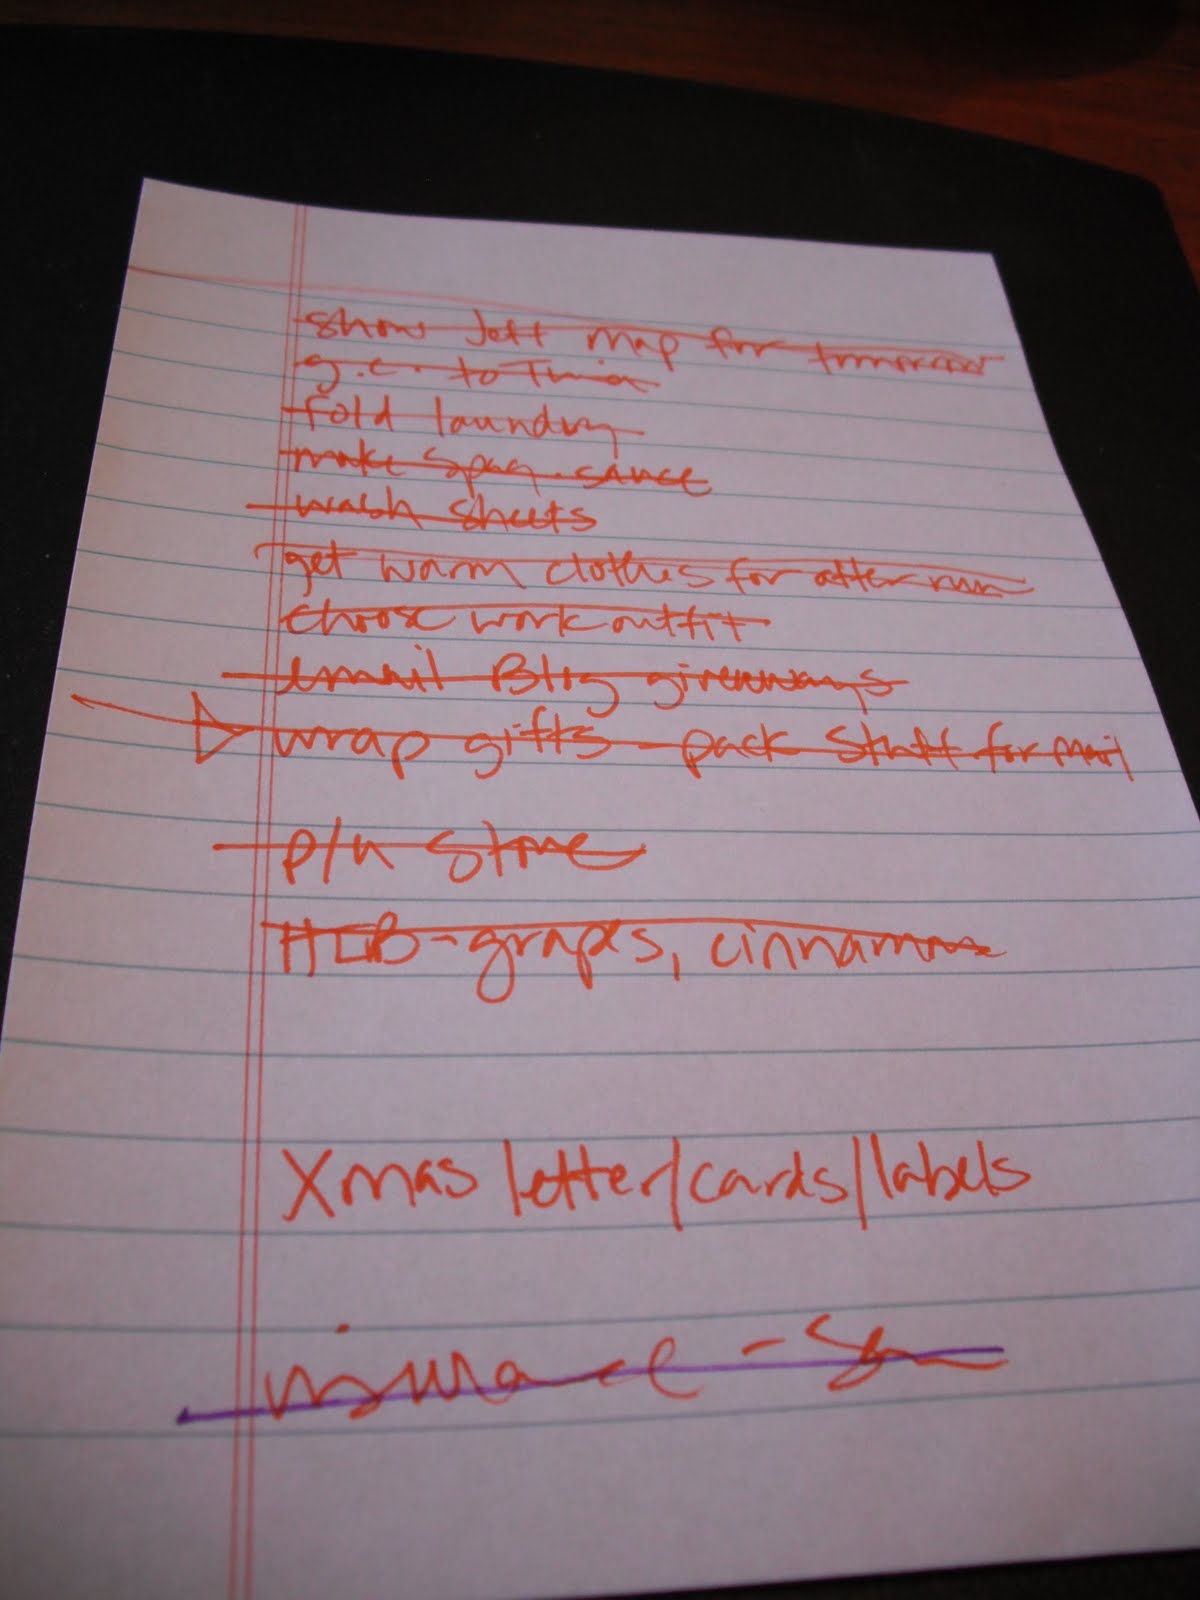 show Jeff map for tomorrow
g.c. to
fold laundry
make spag. sauce
wash sheets
get warm clothes for after run
choose work outfit
email Blog giveaways
wrap gifts - pack stuff for mail
p/u stone
HEB - grapes, cinnamon
Xmas letter/cards/labels
insurance -